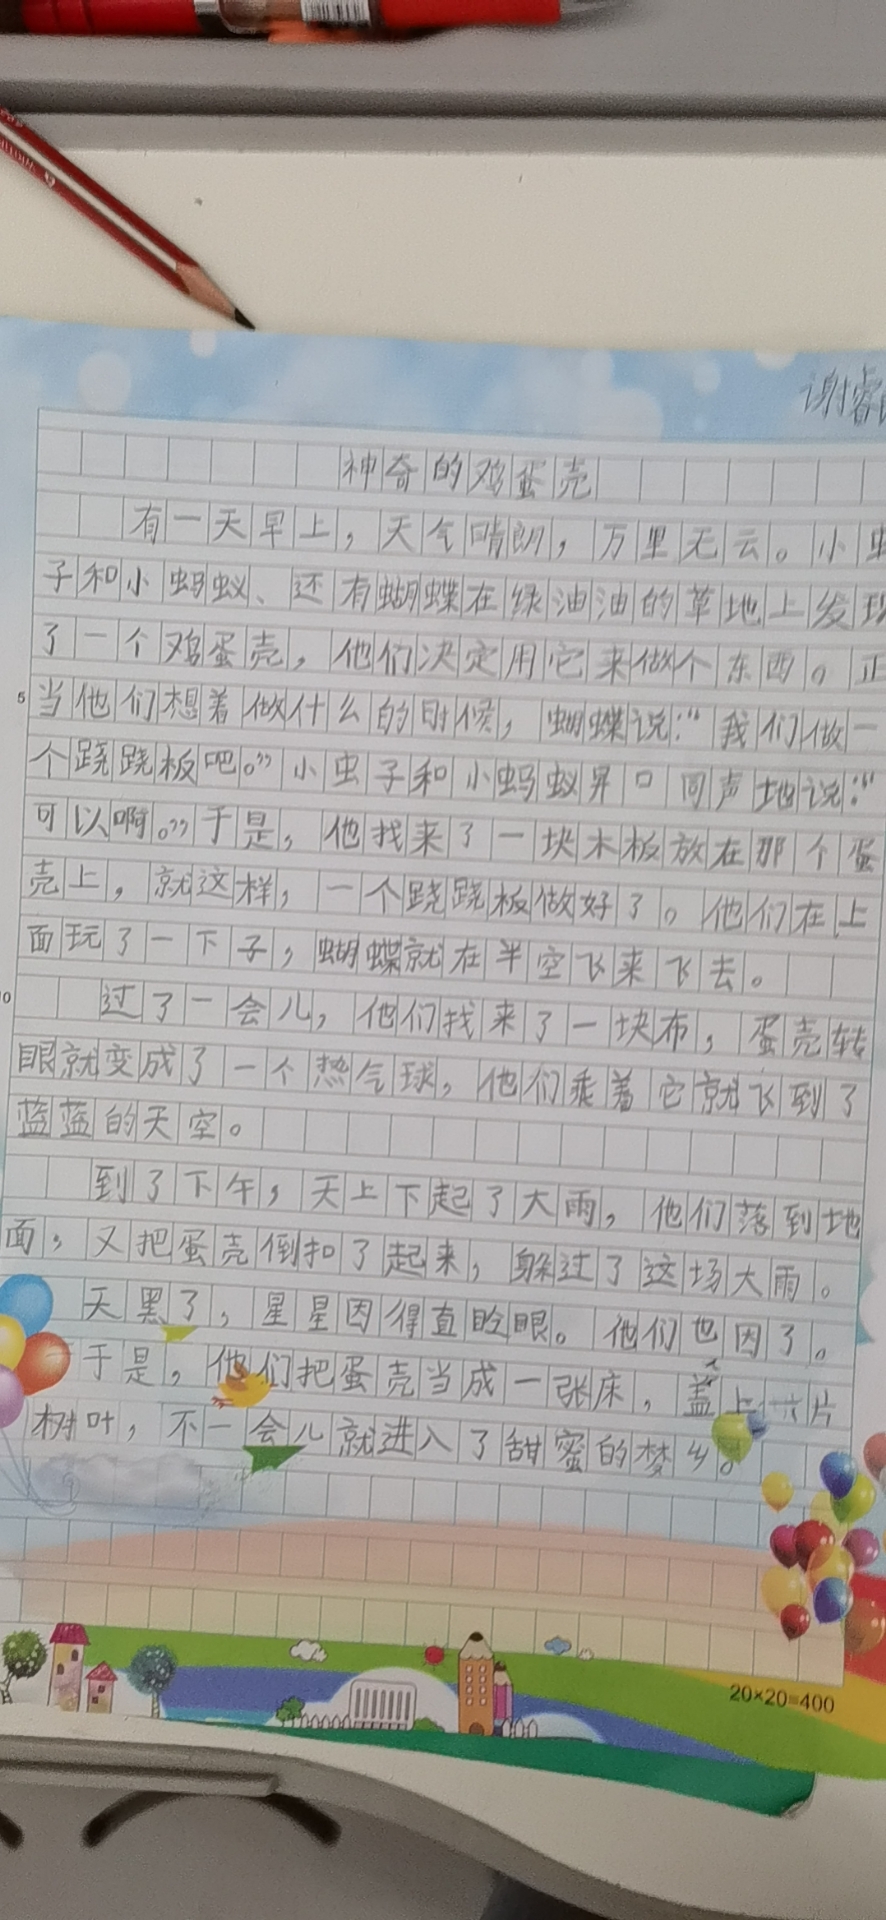 谢睿
神奇的鸡蛋壳
有一天早上，天气晴朗，万里无云。小虫
子和小蚂蚁、还有蝴蝶在绿油油的草地上发现
了一个鸡蛋壳，他们决定用它来做个东西。正
5
当他们想着做什么的时候，蝴蝶说：“我们做一
个跷跷板吧。”小虫子和小蚂蚁异口同声地说：“
可以啊。”于是，他找来了一块木板放在那个蛋
壳上，就这样，一个跷跷板做好了。他们在上
面玩了一下子，蝴蝶就在半空飞来飞去。
过了一会儿，他们找来了一块布，蛋壳转
眼就变成了一个热气球，他们乘着它就飞到了
蓝蓝的天空。
到了下午，天上下起了大雨，他们落到地
面，又把蛋壳倒扣了起来，躲过了这场大雨。
天黑了，星星因得直眨眼。他们也因了。
于是，他们把蛋壳当成一张床，盖上片
树叶，不一会儿就进入了甜蜜的梦乡。
20×20=400